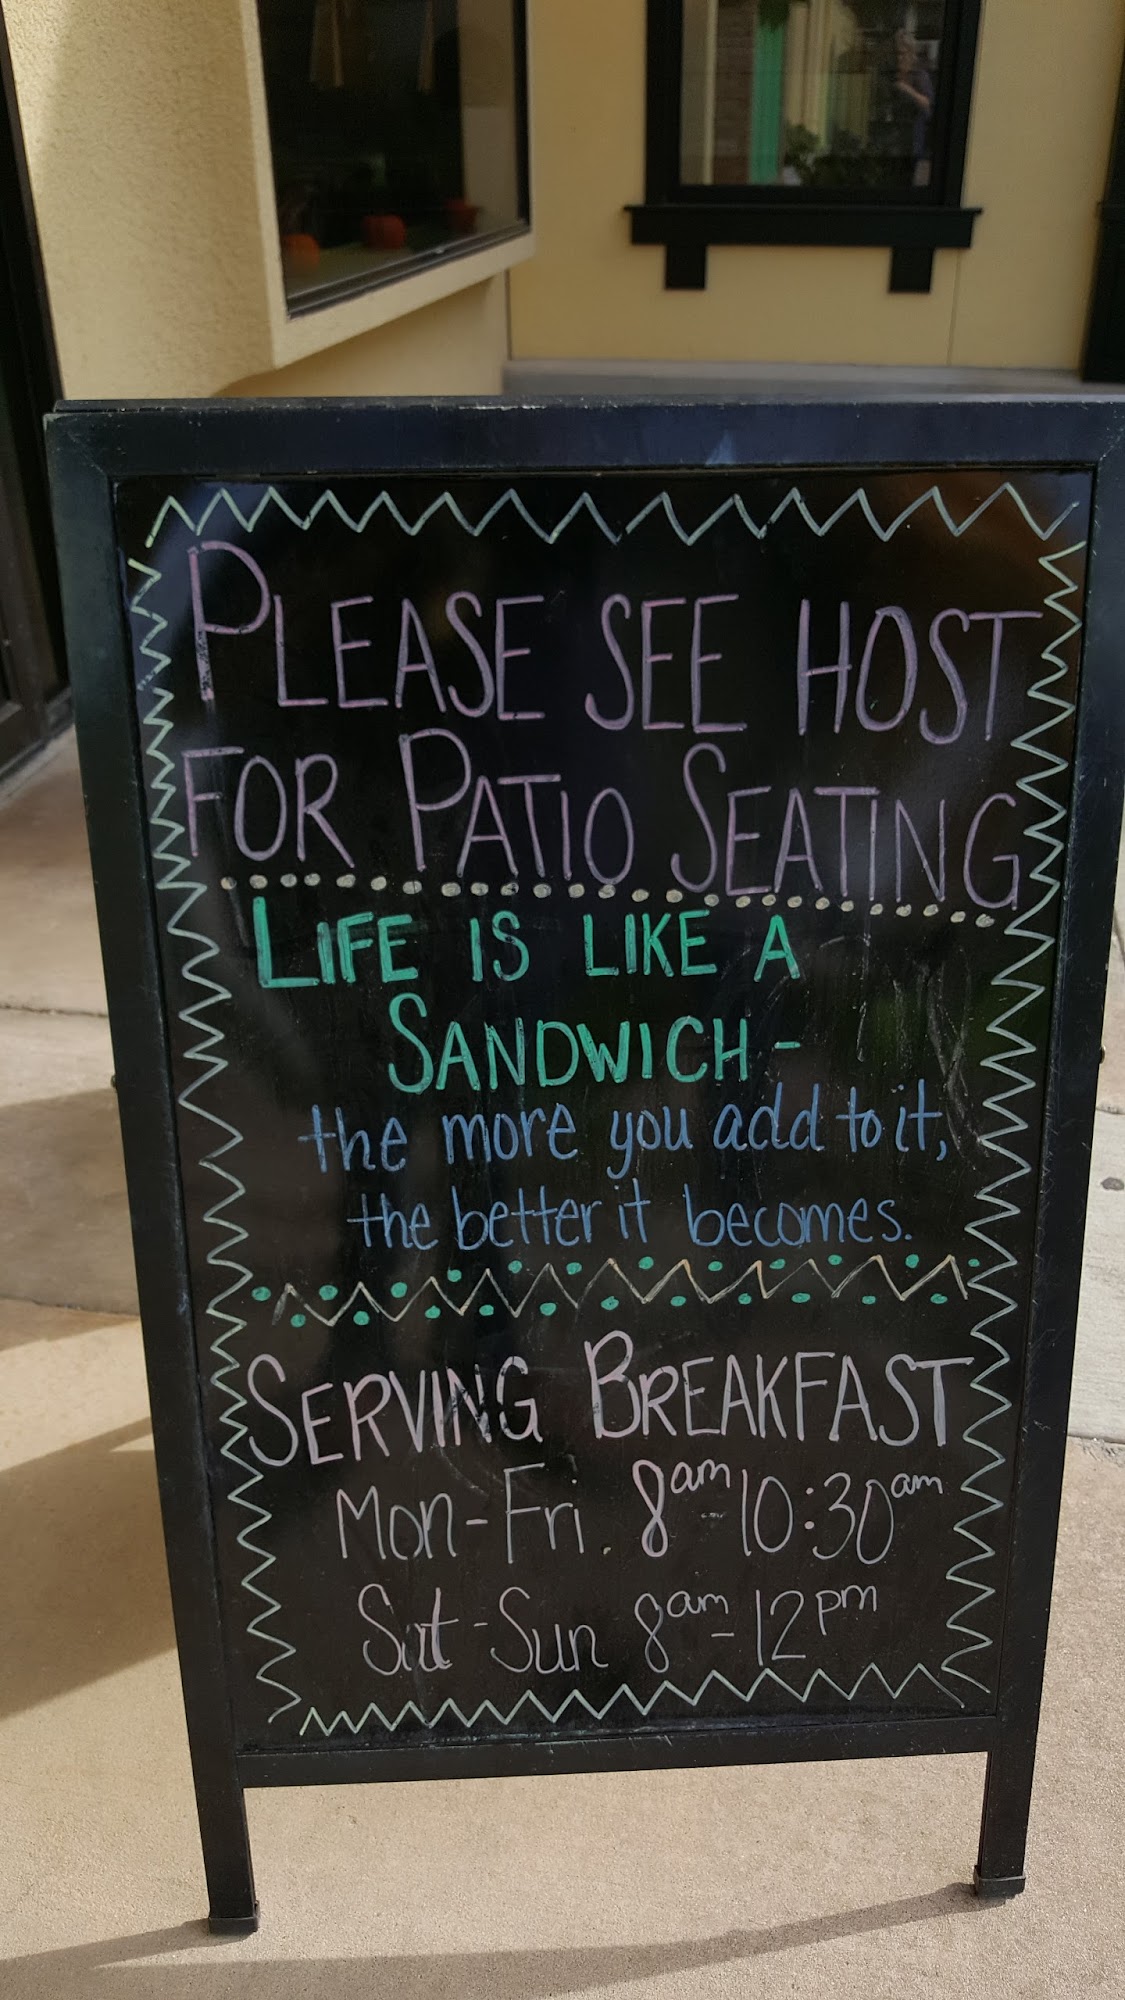 PLEASE SEE HOST
FOR PATIO SEATING
LIFE IS LIKE A
SANDWICH -
the more you add to it,
the better it becomes.
SERVING BREAKFAST
Mon-Fri. 8am-10:30am
Sat-Sun 8am-12pm